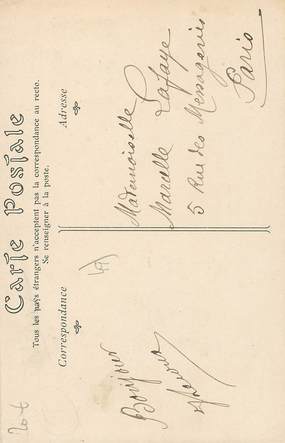 Carte Postale
Tous les pays étrangers n'acceptent pas la correspondance au recto.
Se renseigner à la poste.
Correspondance
Adresse
Bonjour
Mademoiselle
Marcelle Lafaye
5 Rue des Messageries
Paris